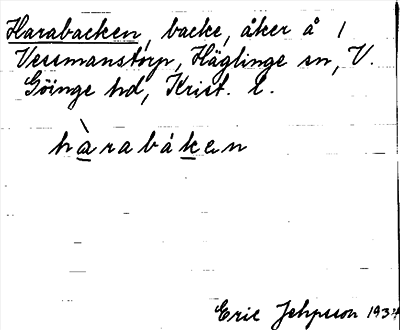 Harabacken, backe, åker å 1
Vessmanstorp, Häglinge sn, V.
Göinge hd, Krist. l.
hàrabáken
Eric Jehpsson 1934